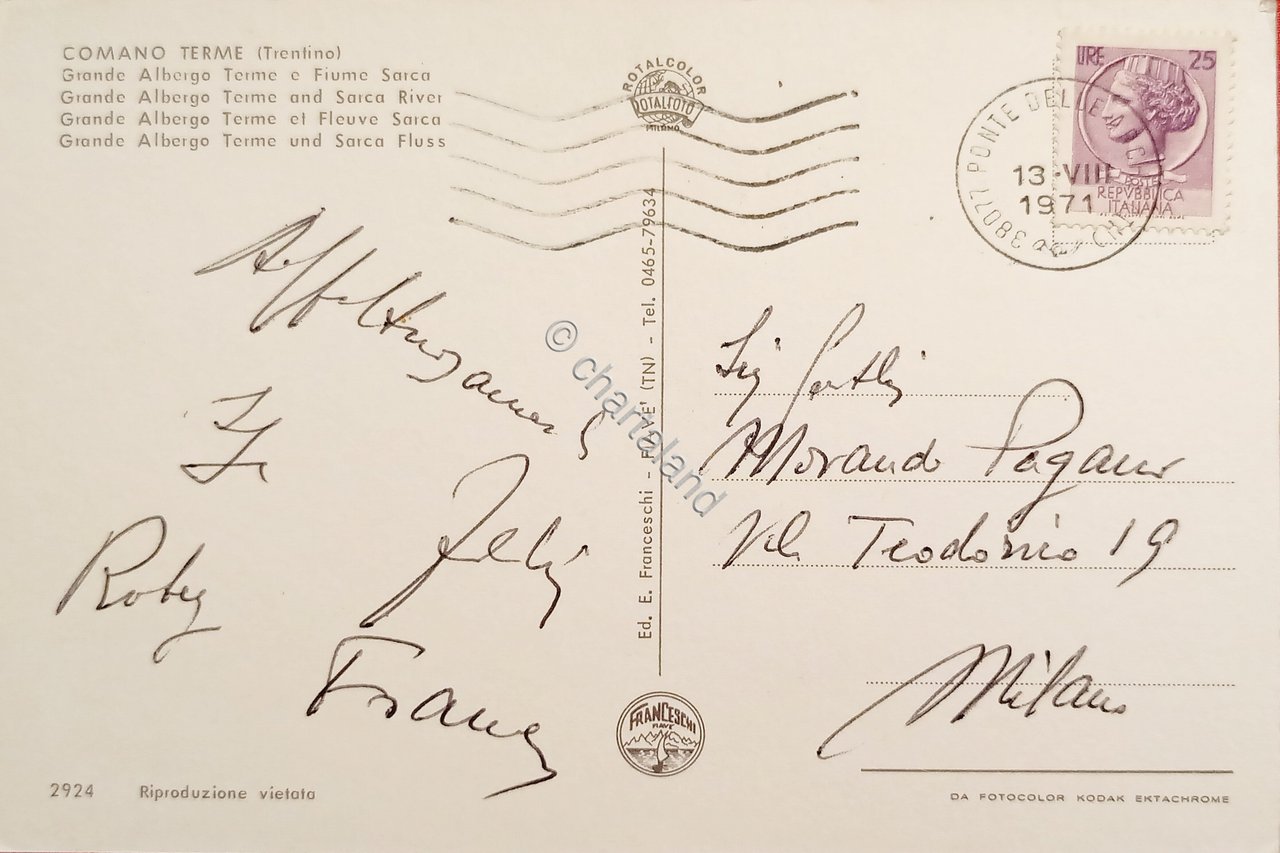 COMANO TERME (Trentino)
Grande Albergo Terme e Fiume Sarca
Grande Albergo Terme and Sarca River
Grande Albergo Terme et Fleuve Sarca
Grande Albergo Terme und Sarca Fluss
ROTALCOLOR
ROTALFOTO
MILANO
LIRE 25
POSTE
REPVBBLICA
ITALIANA
38077 PONTE DELLE ARCHE
13-VIII
1971
Affettuosamente
Roby
Franca
Ed. E. Franceschi - FIAVE' (TN) - Tel. 0465-79634
© chartaland
Morando Pagano
Vle Teodorico 19
Milano
FRANCESCHI
FIAVE'
2924 Riproduzione vietata
DA FOTOCOLOR KODAK EKTACHROME